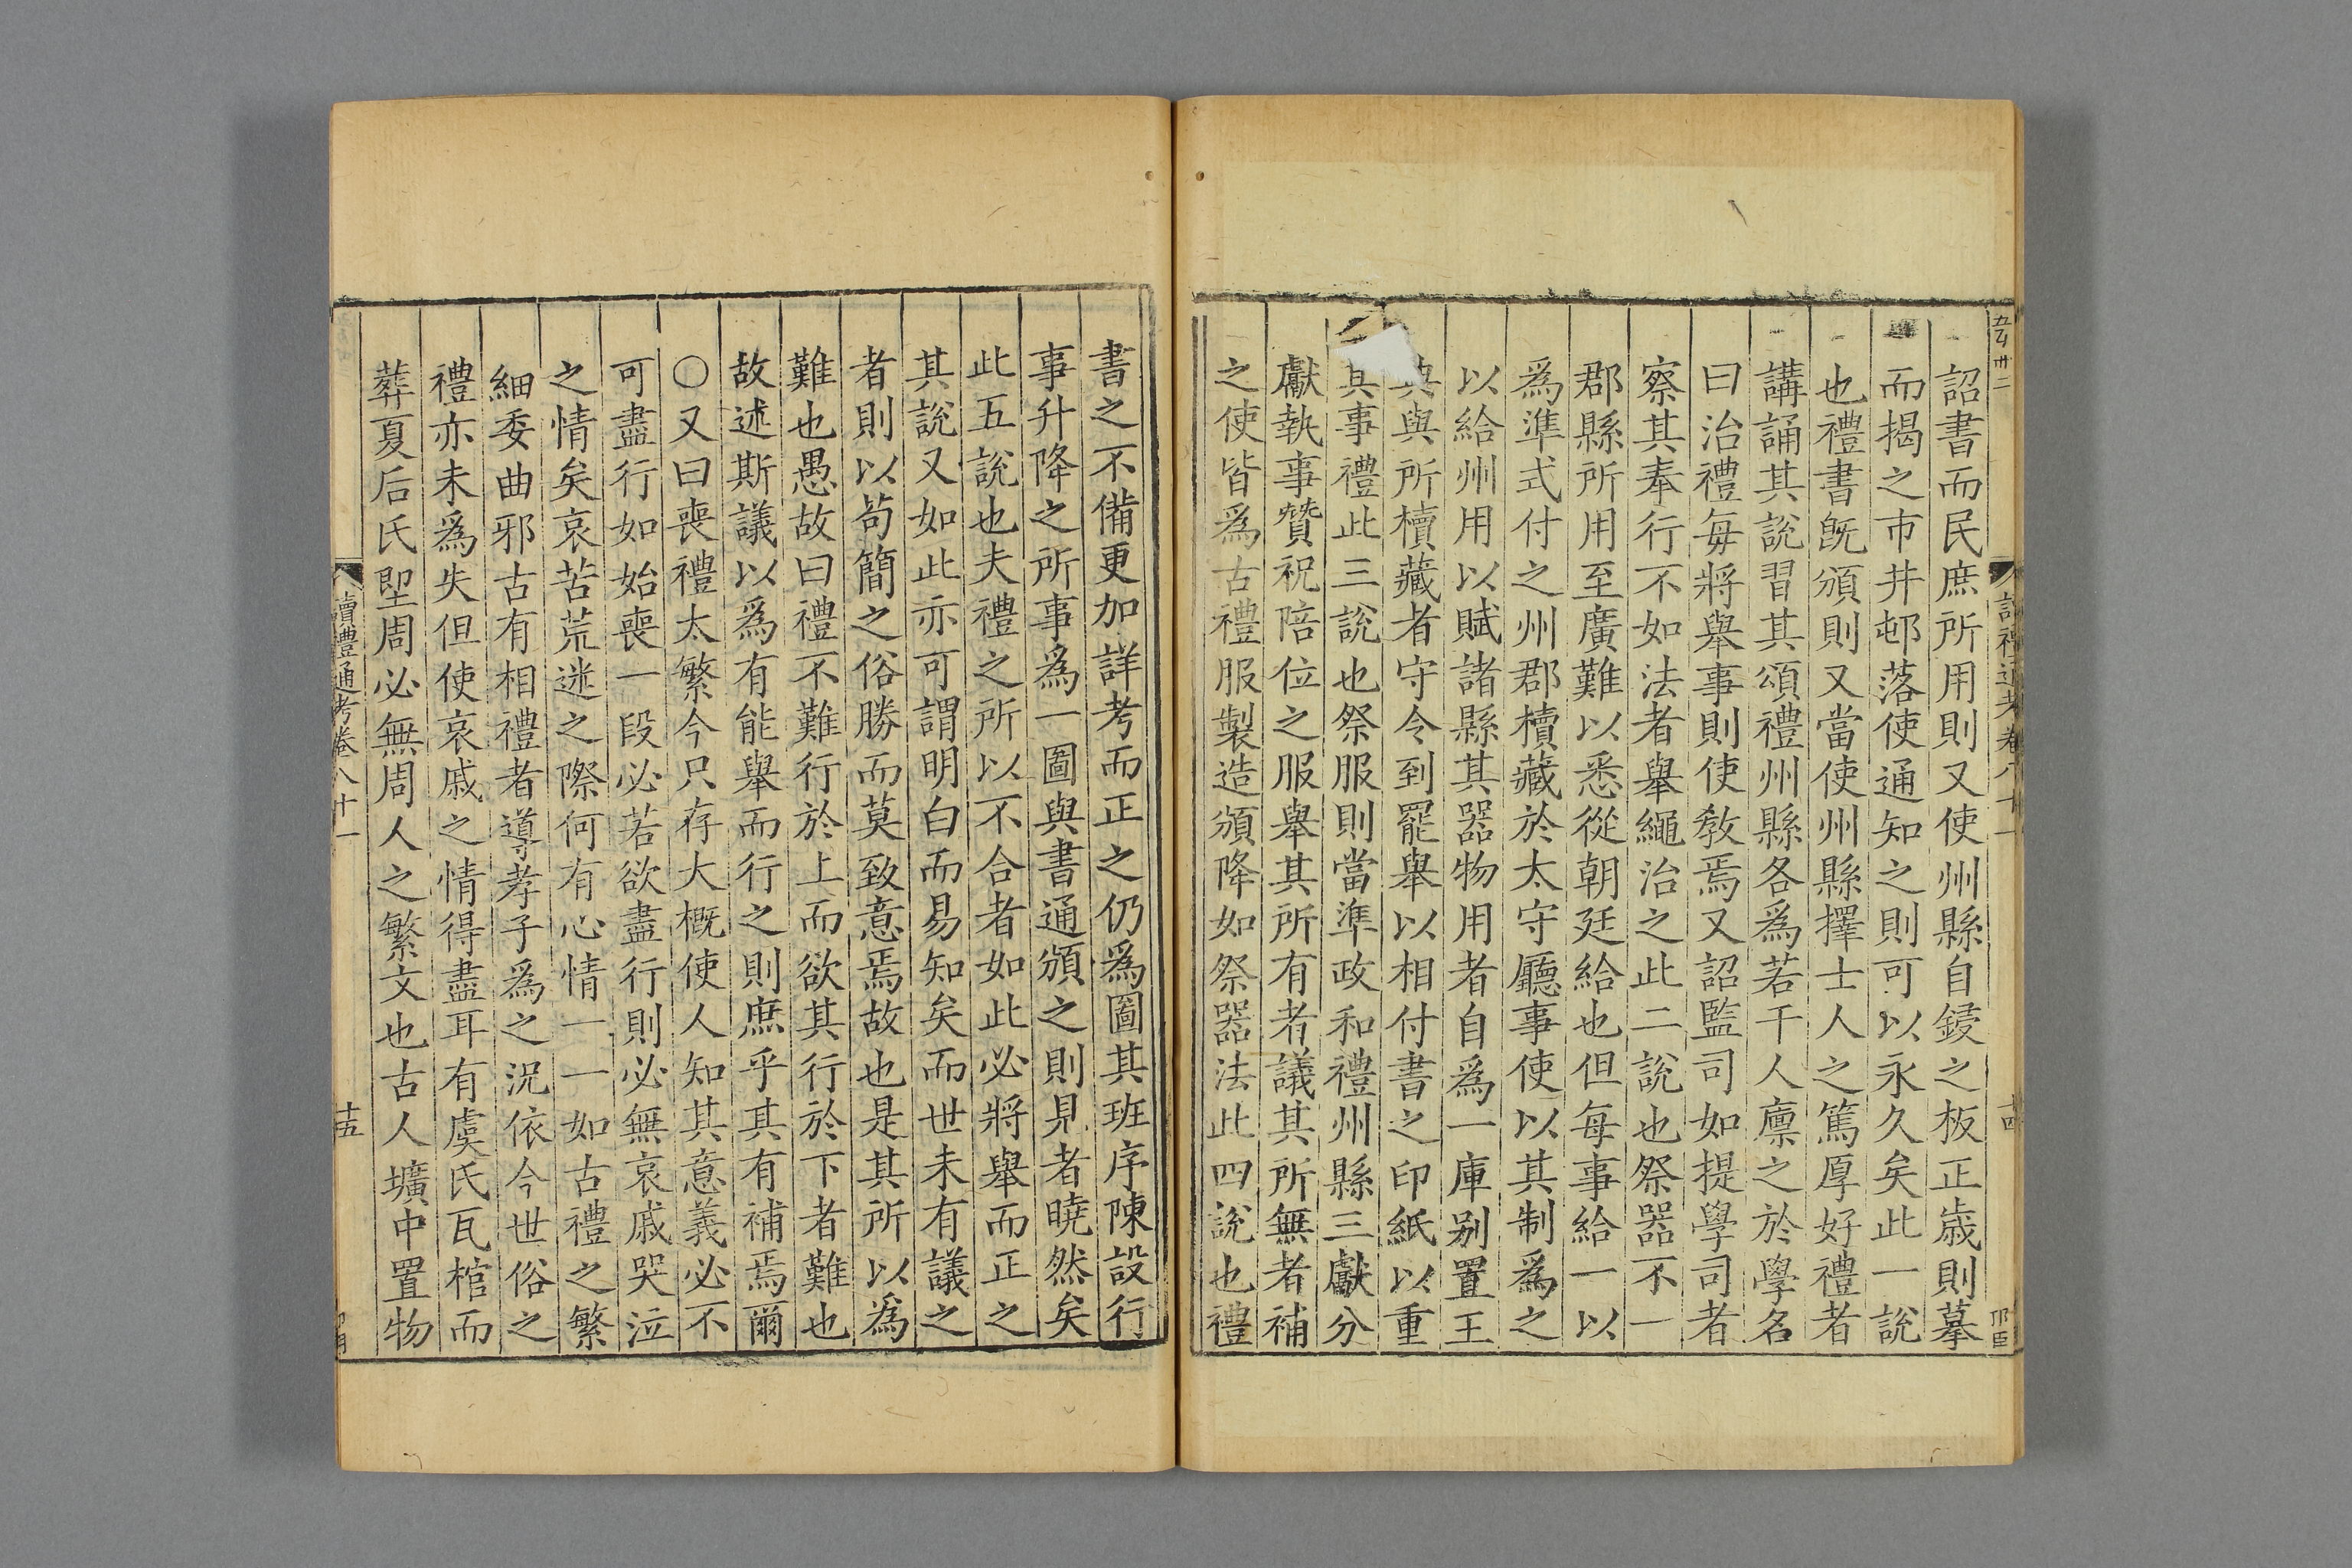 詔書而民庶所用則又使州縣自鋟之板正歲則摹
而揭之市井邨落使通知之則可以永久矣此一說
也禮書旣頒則又當使州縣擇士人之篤厚好禮者
講誦其說習其頌禮州縣各爲若干人廪之於學名
曰治禮每將舉事則使教焉又詔監司如提學司者
察其奉行不如法者舉繩治之此二說也祭器不一
郡縣所用至廣難以悉從朝廷給也但每事給一以
爲準式付之州郡櫝藏於太守廳事使以其制爲之
以給州用以賦諸縣其器物用者自爲一庫别置主
典與所櫝藏者守令到罷舉以相付書之印紙以重
其事禮此三說也祭服則當準政和禮州縣三獻分
獻執事贊祝陪位之服舉其所有者議其所無者補
之使皆爲古禮服製造頒降如祭器法此四說也禮
書之不備更加詳考而正之仍爲圖其班序陳設行
事升降之所事爲一圖與書通頒之則見者曉然矣
此五說也夫禮之所以不合者如此必將舉而正之
其說又如此亦可謂明白而易知矣而世未有議之
者則以苟簡之俗勝而莫致意焉故也是其所以爲
難也愚故曰禮不難行於上而欲其行於下者難也
故述斯議以爲有能舉而行之則庶乎其有補焉爾
○又曰喪禮太繁今只存大槪使人知其意義必不
可盡行如始喪一段必若欲盡行則必無哀戚哭泣
之情矣哀苦荒迷之際何有心情一一如古禮之繁
細委曲邪古有相禮者導孝子爲之況依今世俗之
禮亦未爲失但使哀戚之情得盡耳有虞氏瓦棺而
葬夏后氏堲周必無周人之繁文也古人壙中置物
讀禮通考卷八十一
十五